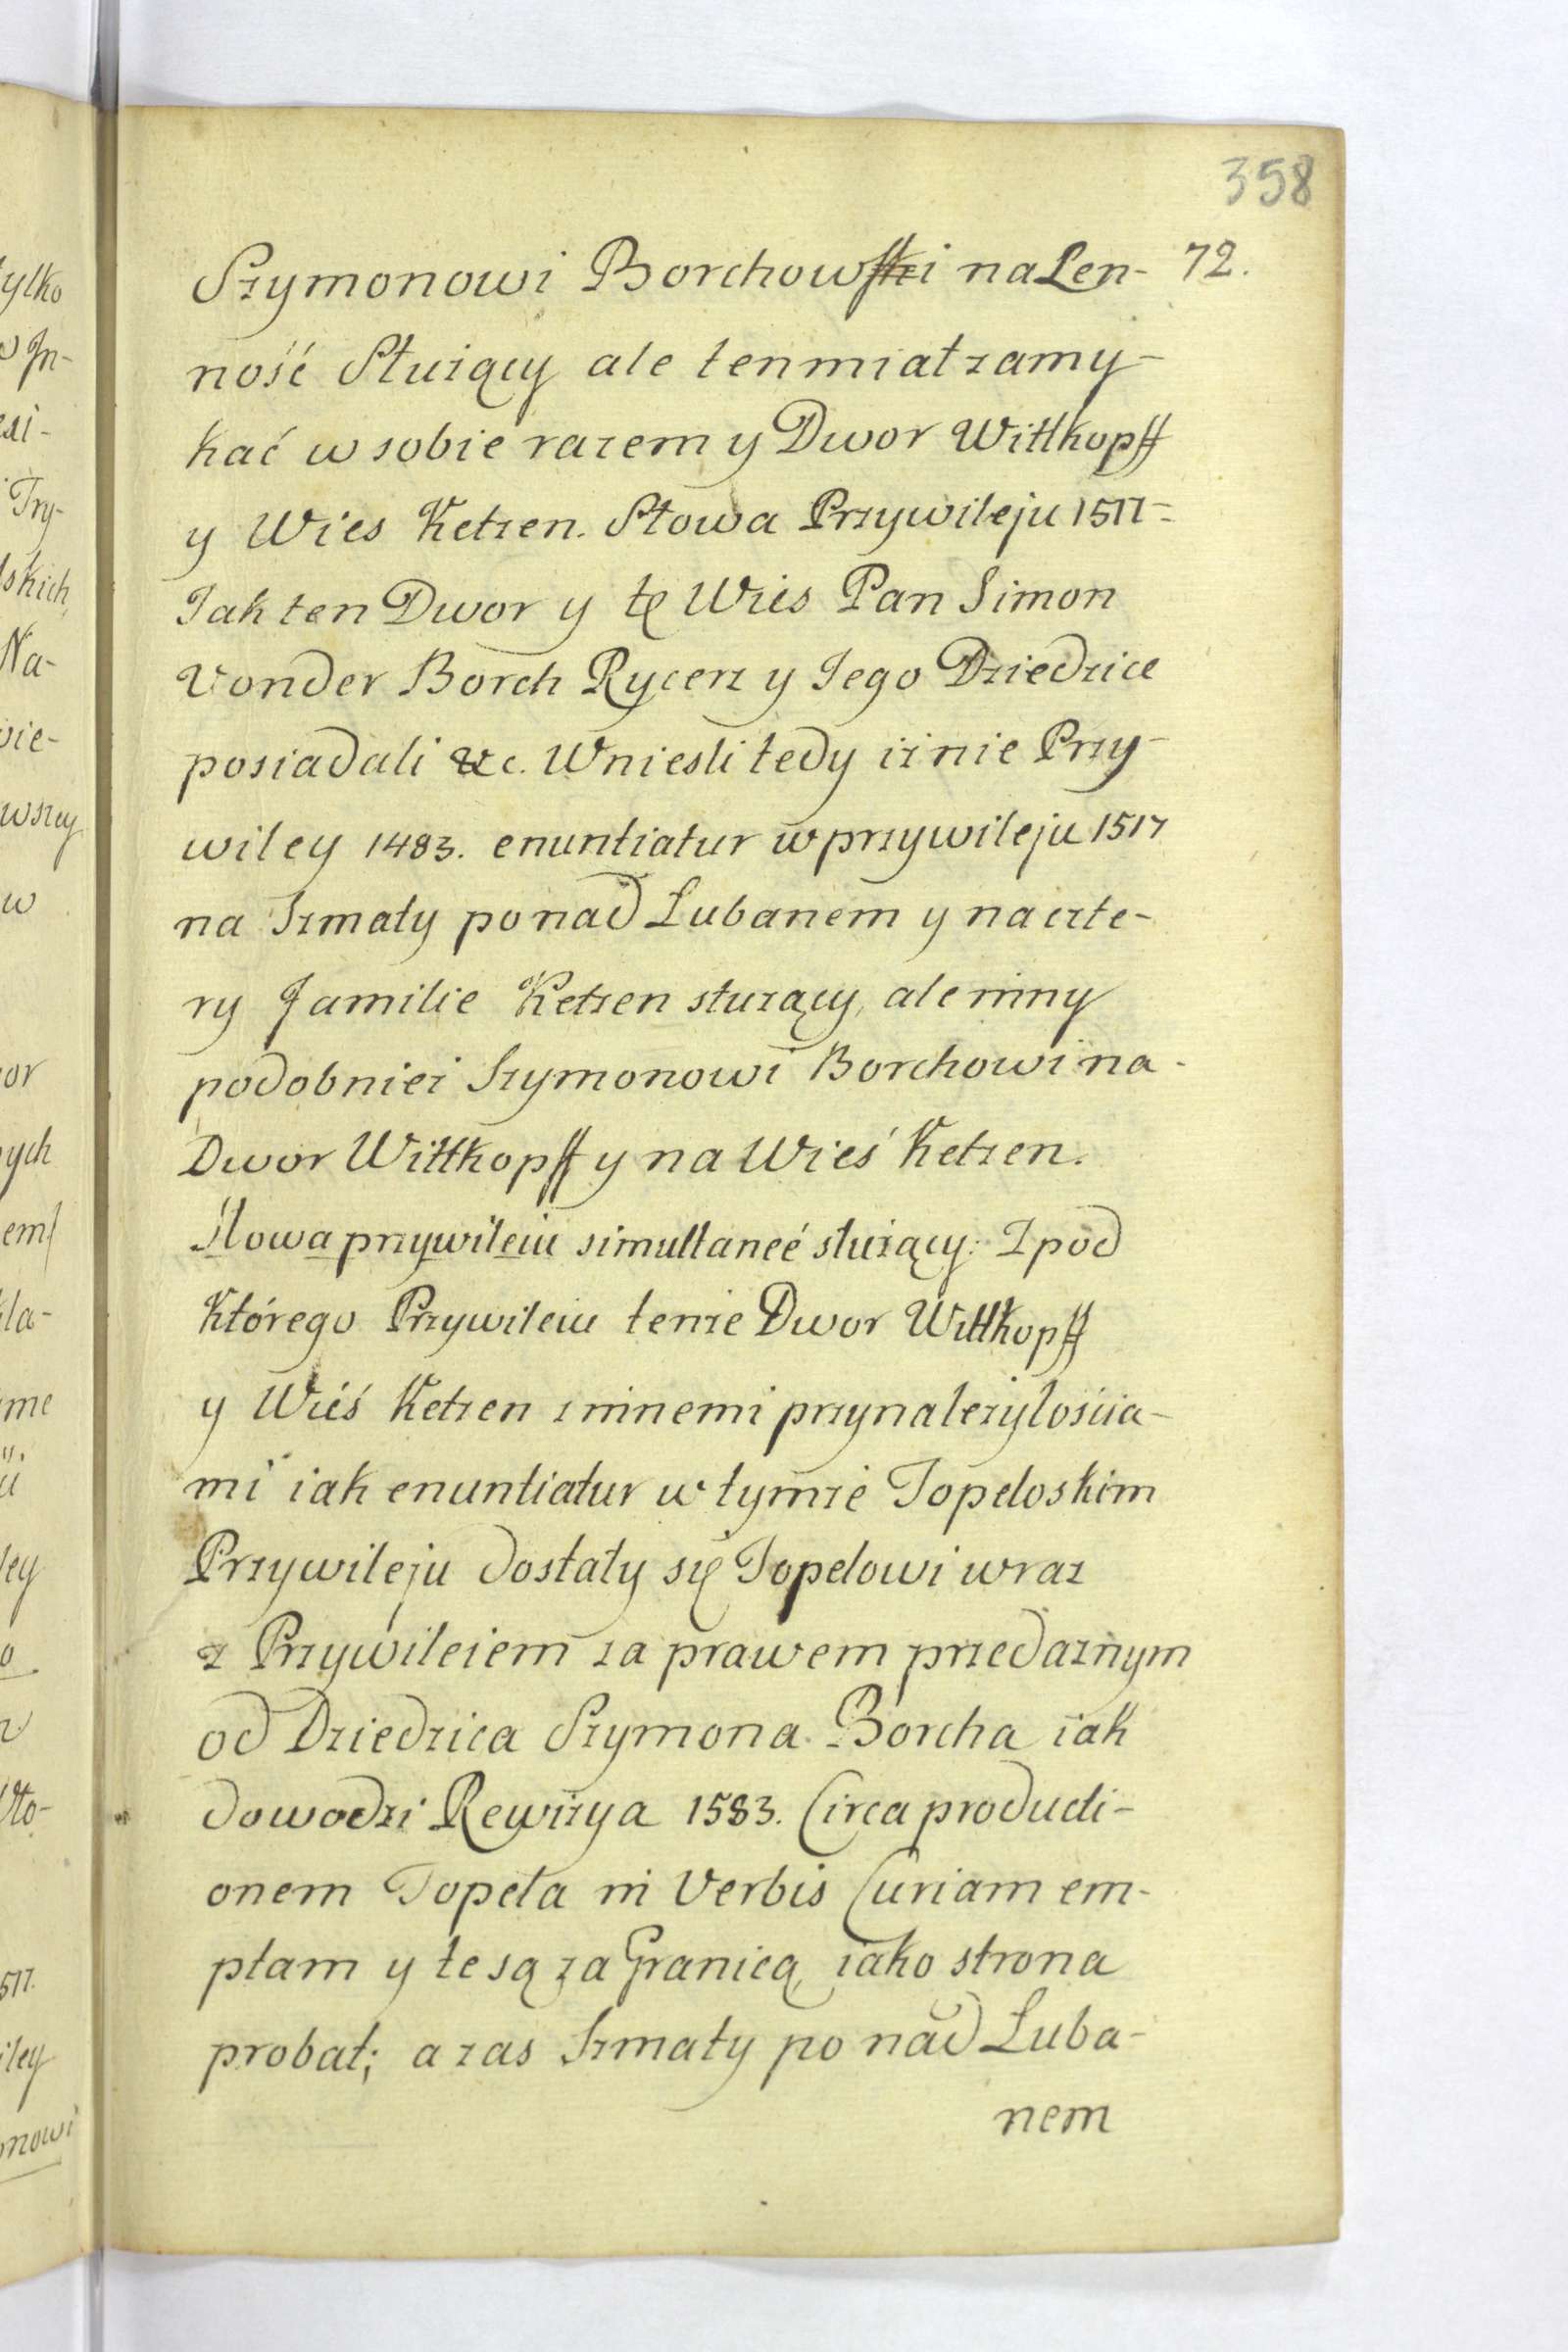 358
Szymonowi Borchowski na Len- 72.
ność Służący ale ten miał zamy-
kać w sobie razem y Dwor Wittkopff
y Wies Ketzen. Słowa Przywileju 1517-
Jak ten Dwor y tę Wies Pan Simon
Vonder Borch Rycerz y Jego Dziedzice
posiadali &c. Wniesli tedy iż nie Przy-
wiley 1483. enuntiatur w przywileju 1517
na Szmaty ponad Lubanem y na czte-
ry Familie Ketzen służący, ale inny
podobnież Szymonowi Borchowi na-
Dwor Wittkopff y na Wieś Ketzen.
Słowa przywileiu simultaneé służący: Z pod
Którego Przywileiu tenże Dwor Wittkopff
y Wieś Ketzen z innemi przynależytościa-
mi iak enuntiatur w tymże Topeloskim
Przywileju dostały się Topelowi wraz
z Przywileiem za prawem przedażnym
od Dziedzica Szymona Borcha iak
dowodzi Rewizya 1583. Circa producti-
onem Topela in Verbis Curiam em-
ptam y te są za Granicą, iako strona
probat; a zas Szmaty po nad Luba-
nem
ylko
w In-
Try-
lskich
Na-
wie-
wszey
w
or
ych
em
kla-
me
ley
o
Wto-
517.
iley
mowi